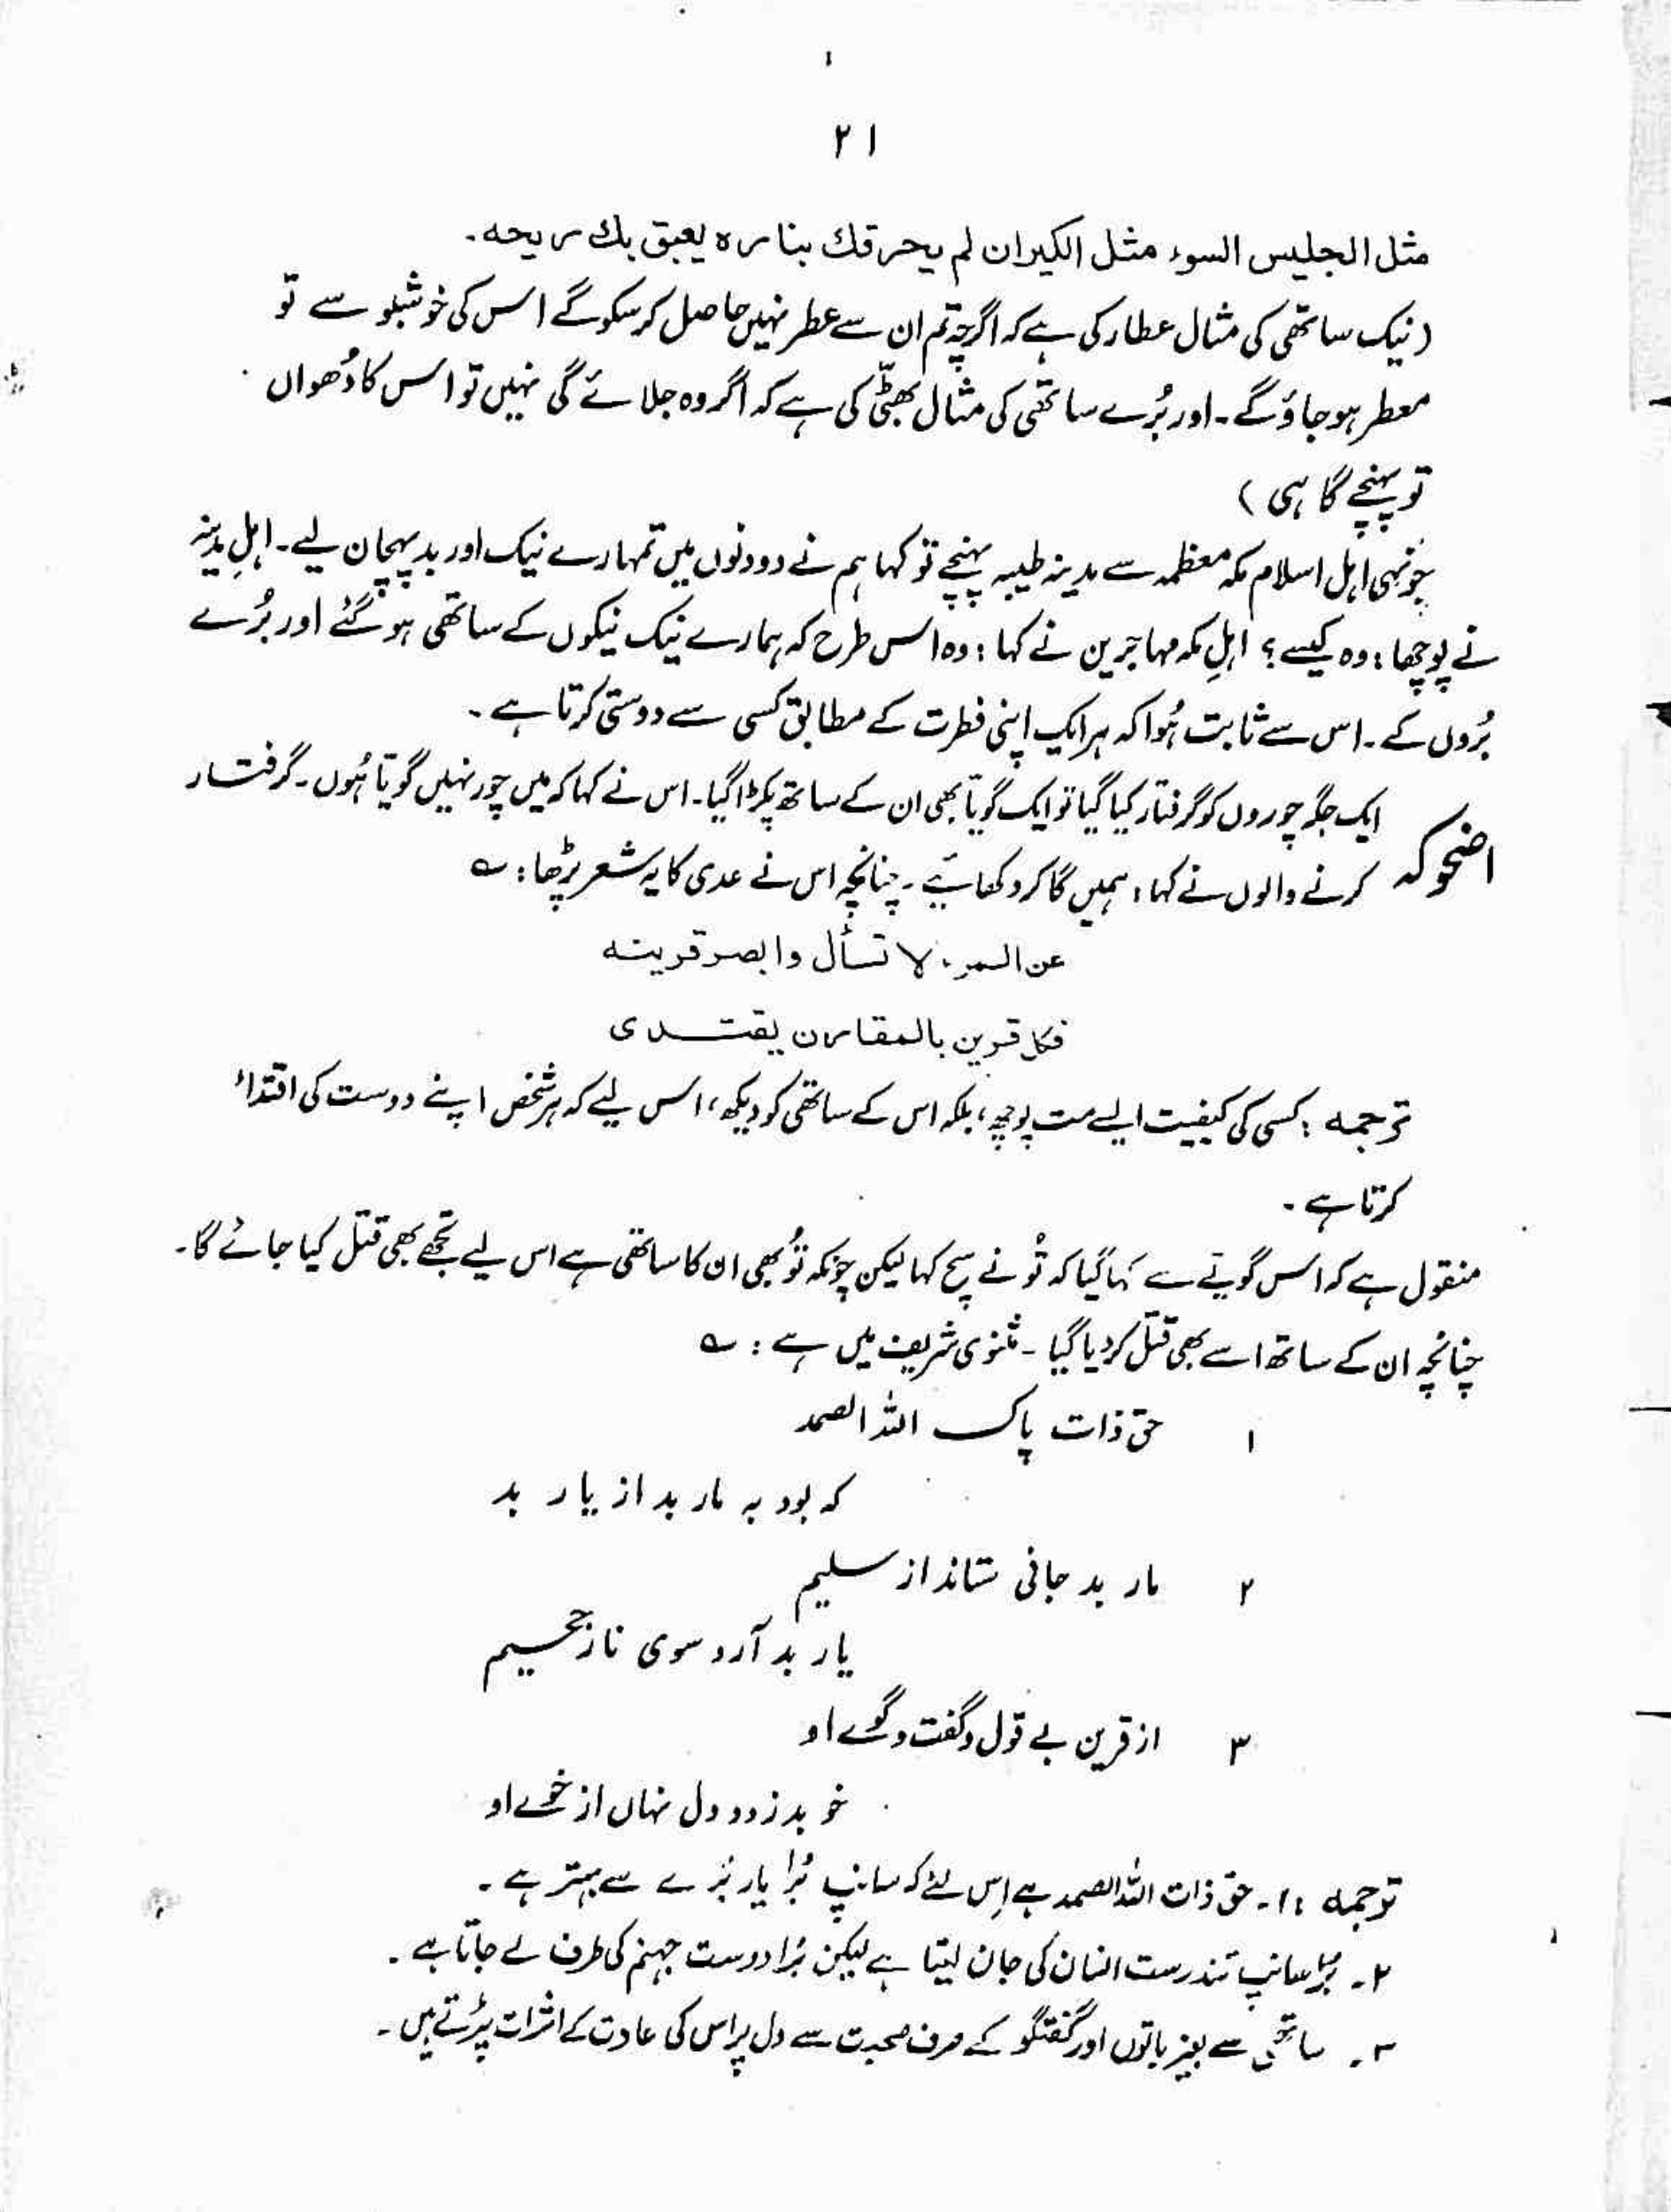 ۲۱
مثل الجليس السوء مثل الكيران لم يحرقك بناره يعبق بك ريحه۔
(نیک ساتھی کی مثال عطار کی ہے کہ اگرچہ تم ان سے عطر نہیں حاصل کر سکو گے اس کی خوشبو سے تو
معطر ہو جاؤ گے۔ اور بُرے ساتھی کی مثال بھٹّی کی ہے کہ اگر وہ جلائے گی نہیں تو اس کا دُھواں
تو پہنچے گا ہی)
جونہی اہل اسلام مکہ معظمہ سے مدینہ طیبہ پہنچے تو کہا ہم نے دو دنوں میں تمہارے نیک اور بد پہچان لیے۔ اہلِ مدینہ
نے پوچھا: وہ کیسے؟ اہلِ مکہ مہاجرین نے کہا: وہ اس طرح کہ ہمارے نیک نیکوں کے ساتھی ہو گئے اور بُرے
بُروں کے۔ اس سے ثابت ہُوا کہ ہر ایک اپنی فطرت کے مطابق کسی سے دوستی کرتا ہے۔
اضحوکہ ایک جگہ چوروں کو گرفتار کیا گیا تو ایک گویّا بھی ان کے ساتھ پکڑا گیا۔ اس نے کہا کہ میں چور نہیں گویّا ہُوں۔ گرفتار
کرنے والوں نے کہا: ہمیں گا کر دکھائیے۔ چنانچہ اس نے عدی کا یہ شعر پڑھا: ؎
عن المرء لا تسأل وابصر قرينه
فكل قرين بالمقارن يقتدى
ترجمہ: کسی کی کیفیت ایسے مت پوچھ، بلکہ اس کے ساتھی کو دیکھ، اس لیے کہ ہر شخص اپنے دوست کی اقتداء
کرتا ہے۔
منقول ہے کہ اس گویّے سے کہا گیا کہ تُو نے سچ کہا لیکن چونکہ تُو بھی ان کا ساتھی ہے اس لیے تجھے بھی قتل کیا جائے گا۔
چنانچہ ان کے ساتھ اسے بھی قتل کر دیا گیا۔ مثنوی شریف میں ہے: ؎
۱ حق ذات پاک اللہ الصمد
کہ بود بہ مار بد از یار بد
۲ مار بد جانی ستاند از سلیم
یار بد آرد سوی نار جحیم
۳ از قرین بے قول و گفت و گوے او
خو بدزدد دل نہاں از خوے او
ترجمہ: ۱۔ حق ذات اللہ الصمد ہے اِس لئے کہ سانپ بُرا یار بُرے سے بہتر ہے۔
۲۔ بُرا سانپ تندرست انسان کی جان لیتا ہے لیکن بُرا دوست جہنم کی طرف لے جاتا ہے۔
۳۔ ساتھی سے بغیر باتوں اور گفتگو کے صرف صحبت سے دل پر اس کی عادت کے اثرات پڑتے ہیں۔